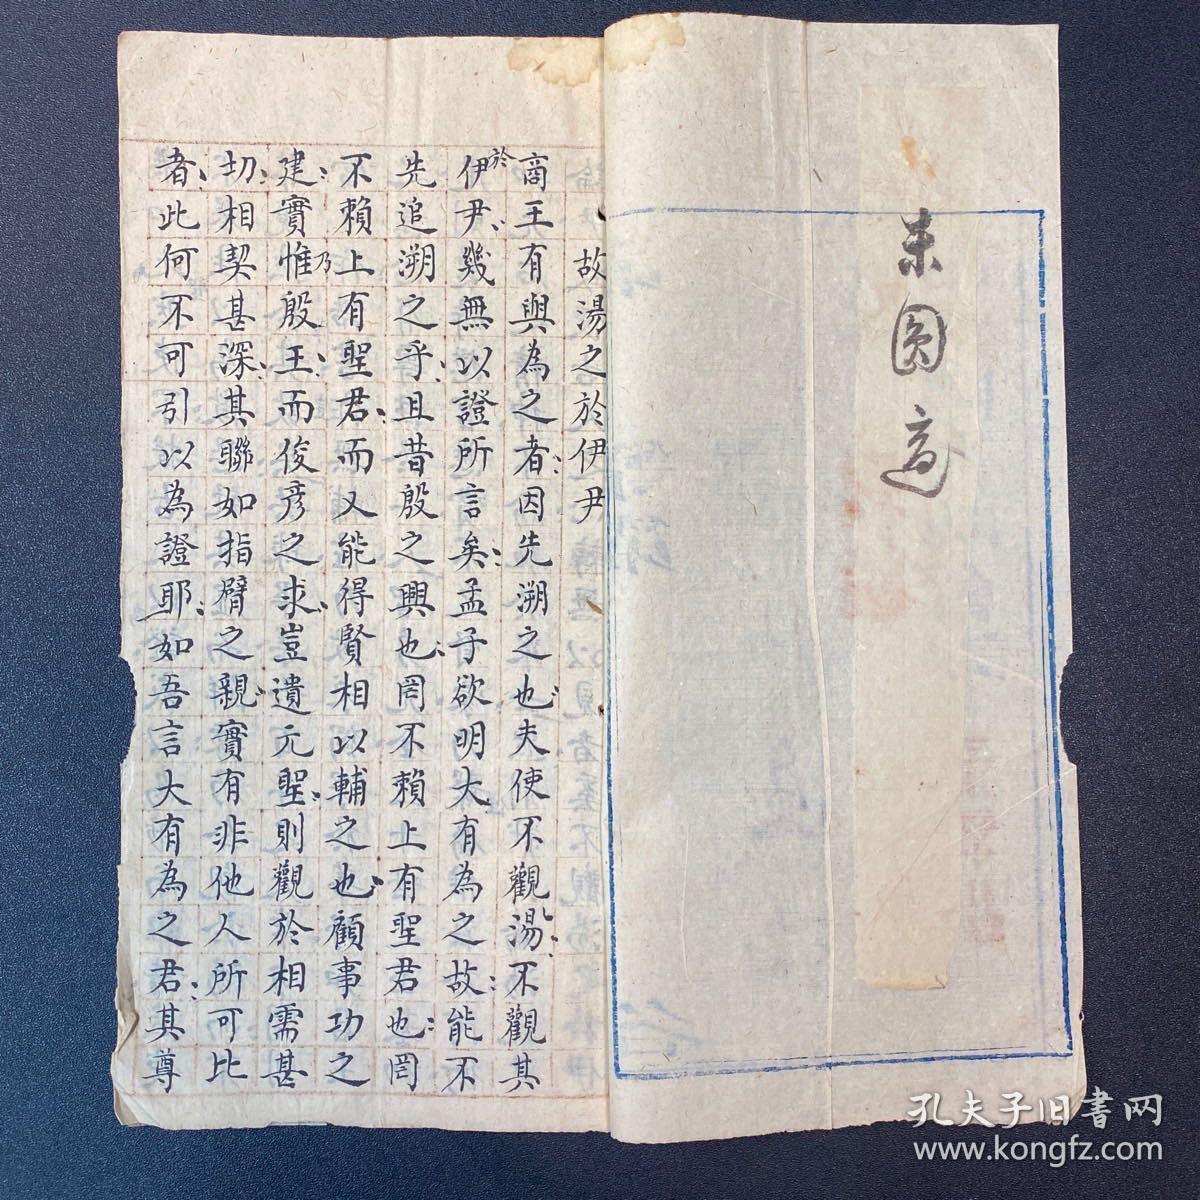 未圓適
故湯之於伊尹
商王有與為之者因先溯之也夫使不觀湯不觀其
於伊尹幾無以證所言矣孟子欲明大有為之故能不
先追溯之乎且昔殷之興也罔不賴上有聖君也罔
不賴上有聖君而又能得賢相以輔之也顧事功之
建實惟乃殷王而俊彦之求豈遺元聖則觀於相需甚
切相契甚深其聯如指臂之親實有非他人所可比
者此何不可引以為證耶如吾言大有為之君其尊
孔夫子旧書网
www.kongfz.com